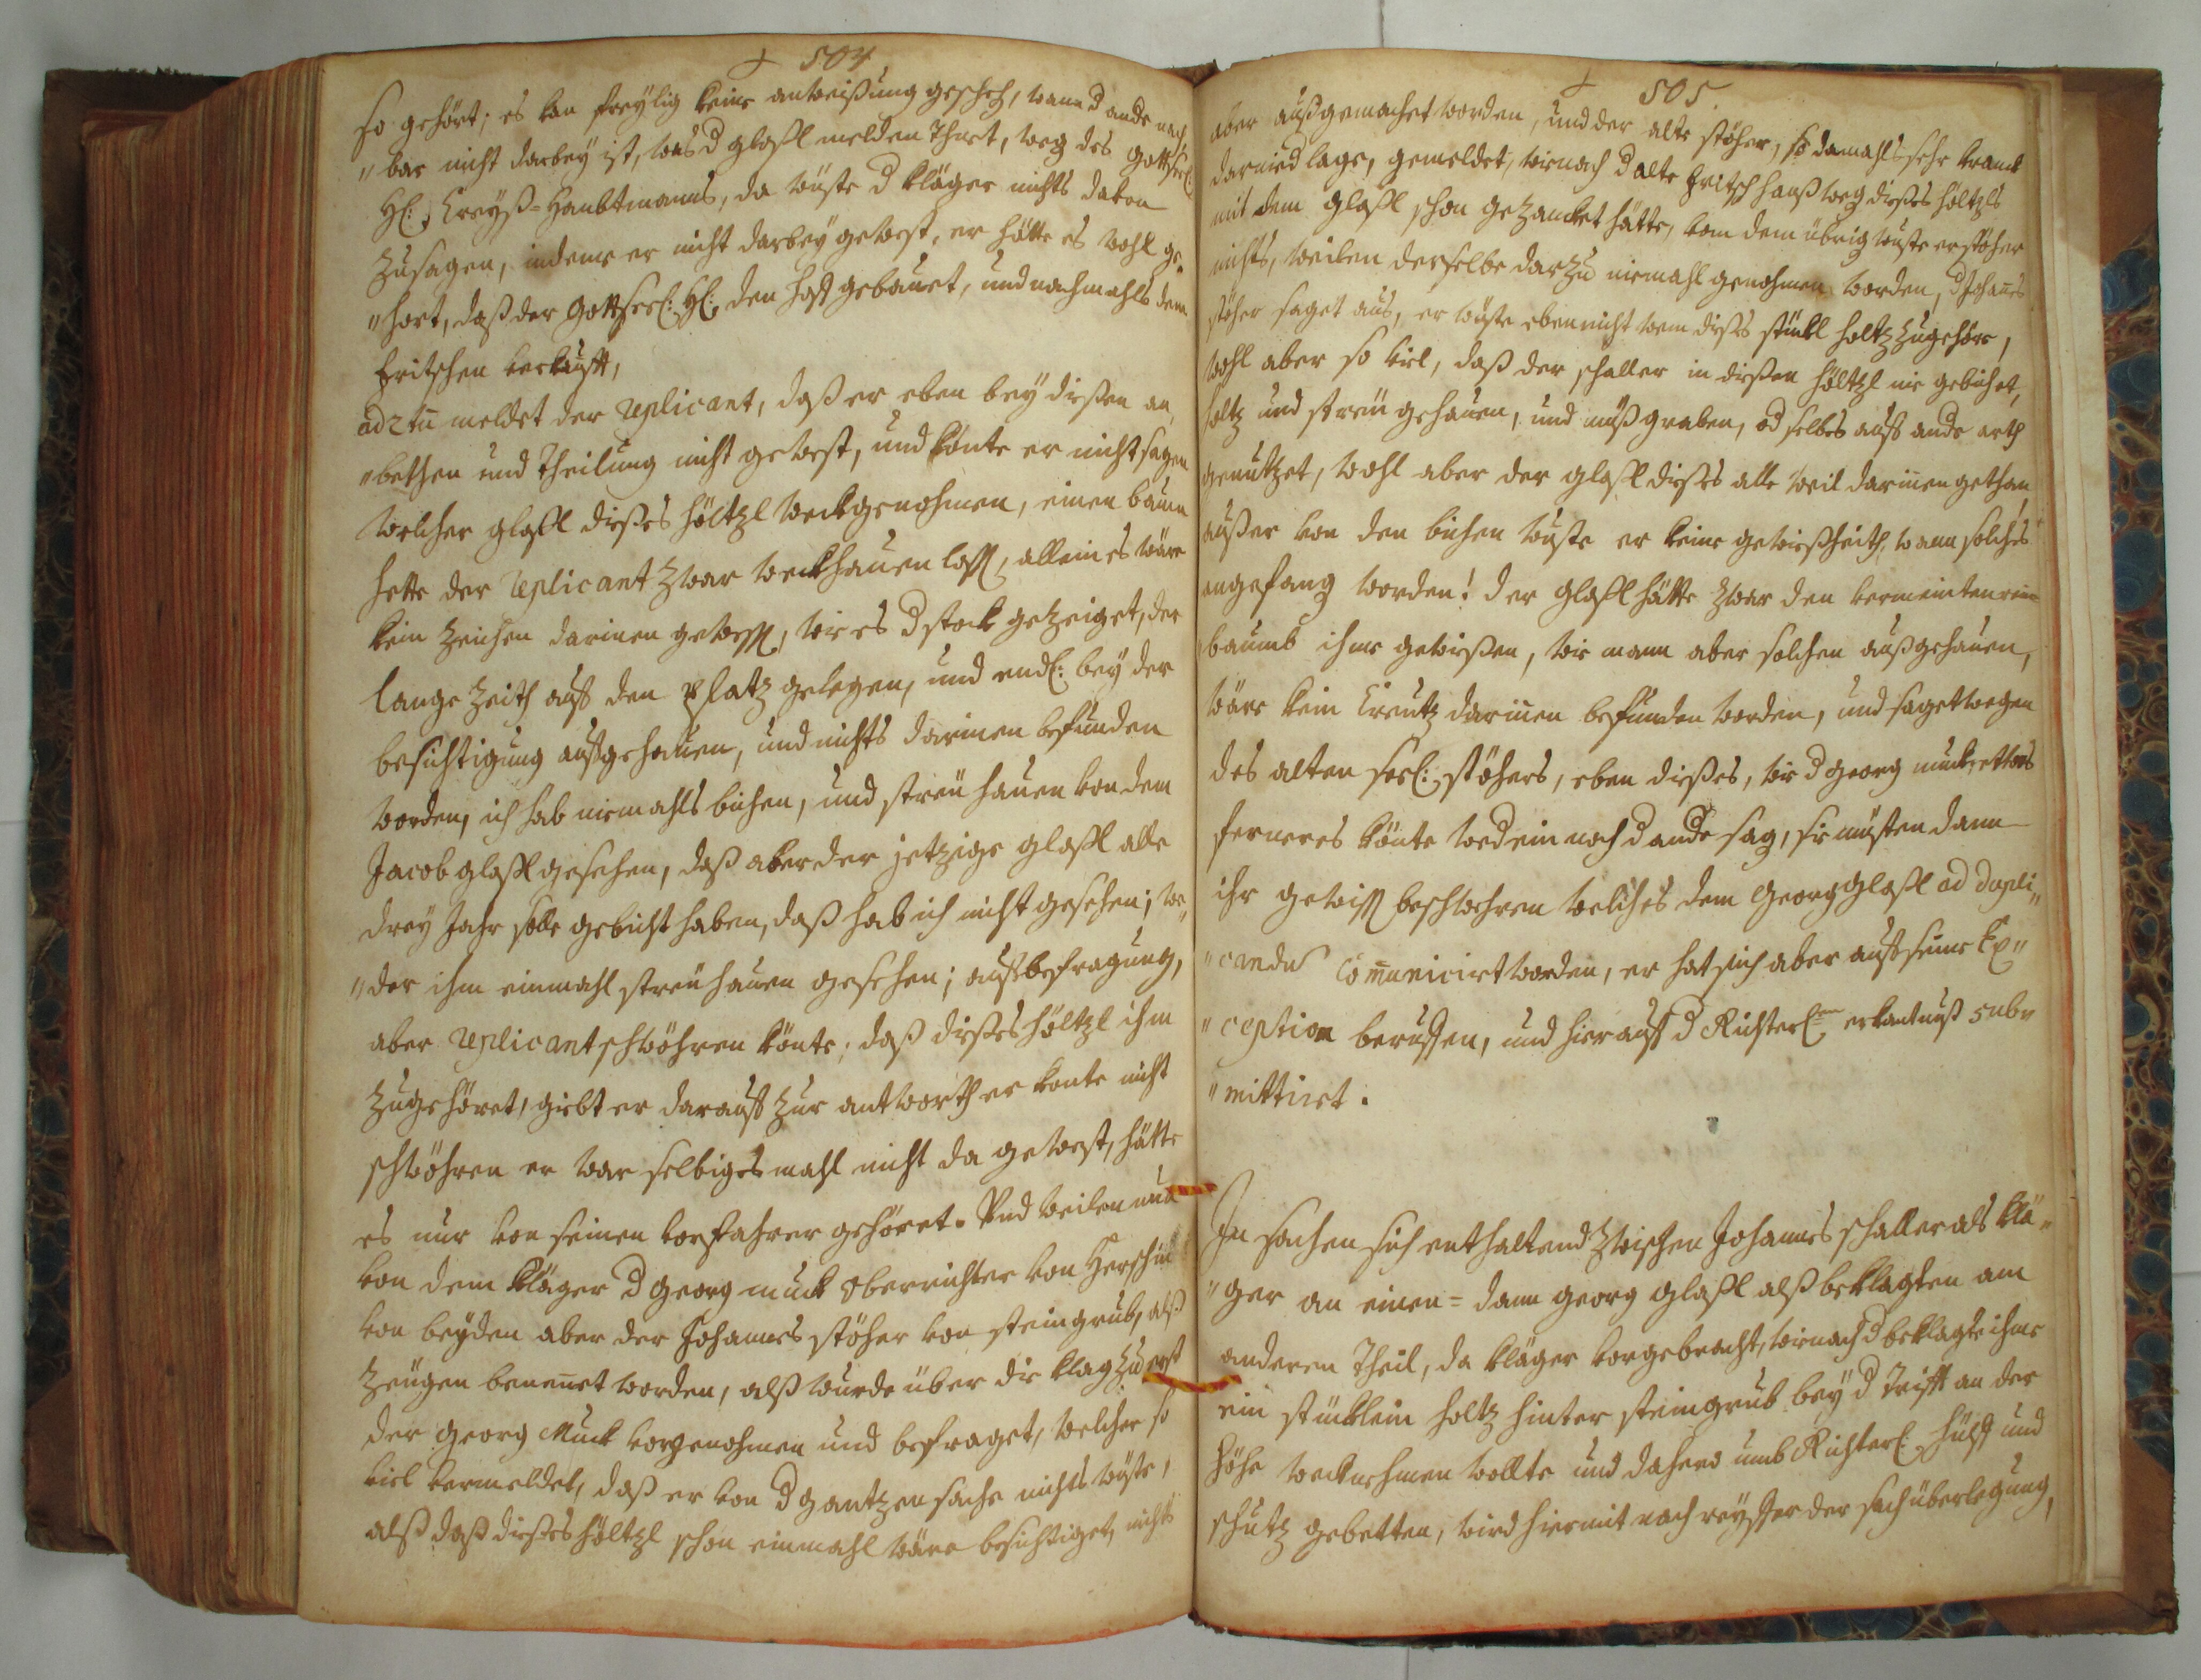 504
so gehört; es kan freylig keine anweißung gescheh, wann d ande nach
"bar nicht darbey ist, was d glaßl melden thuet, weg des Gottseel:
Hl: Creyß-Haubtmanns, da wüste d kläger nichts davon
zusagen, indeme er nicht darbey gewest, er hätte es wohl ge„
"hört, daß der Gottseel: Hl: den hoff gebauet, und nachmahls dem
Fritschen verkaufft,
ad 2tū meldet der Replicant, daß er eben bey dießen an„
"bethen und theilung nicht gewest, und könte er nicht sagen
welcher glaßl dießes höltzl weckgenohmen, einen baum
hette der Replicant zwar weckhauen lass, allein es wäre
kein Zeichen darinen gewess, wie es d stock gezeiget, der
lange Zeith auf den Platz gelegen, und endl: bey der
besichtigung aufgehauen, und nichts darinen befunden
worden, ich hab niemahls bichen, und streu hauen von dem
Jacob glaßl gesehen, daß aber der jetzige glaßl alle
drey Jahr solle gebicht haben, daß hab ich nicht gesehen; we„
"der ihm einmahl streu hauen gesehen; auf befragung,
aber Replicant schwöhren könte; daß dießes höltzl ihm
zugehöret, giebt er darauf zur antworth er konte nicht
schwöhren er war selbiges mahl nicht da gewest, hätte
es nur von seinen vorfahrer gehöret. Und weilen nun
von dem kläger d Georg muck Oberrichter von
von beyden aber der Johannes stöher von steingrub, alß
Zeugen benennet worden, alß wurde über die klag zu erst
der Georg Muck vorgenohmen und befraget, welcher so
viel vermeldet, daß er von d gantzen sache nichts wüste,
alß daß dießes höltzl schon einmahl wäre besichtiget, nichts
505.
aber außgemachet worden, und der alte stöher, so damahls sehr kranck
darnied lage, gemeldet, wienach d alte Fritsch hanß weg dießes höltzls
mit dem glaßl schon gezancket hätte, vom dem übrig wuste er stöher
nichts, weilen derselbe darzu niemahl genohmen worden, d Johanes
stöher saget aus, er wüste eben nicht wem dießes stückl holtz zugehöre,
wohl aber so viel, daß der schaller in dießen höltzl nie gebichet,
holtz und streu gehauen, und graben, od selbes auf ande arth
genutzet, wohl aber der glaßl dießes alle weil darinnen gethan
außer von den bichen wuste er keine gewießheith, wann solches
angefang worden! der glaßl hätte zwar den vermeinten rain
baumb ihme gewießen, wie mann aber solchen außgehauen,
wäre kein Creutz darinnen befunden worden, und saget wegen
des alten seel: stöhers, eben dießes, wie d georg muck, etwas
ferneres könte wed ein noch d ande sag, sie müsten dann
ihr gewiss beschwehren welches dem Georg glaßl ad dupli„
"candū comunicirt worden, er hat sich aber auf seine Ex„
"ception beruffen, und hierauf d Richterl: erkantnuß sub„
"mittirt.
In sachen sich enthaltend zwischen Johannes schaller als klä„
"ger an einen= dann georg glaßl alß beklagten am
anderen theil, da kläger vorgebracht, wienach d beklagte ihme
ein stücklein holtz hinter steingrub bey d Trifft an der
höhe wecknehmen wollte und dahero umb Richterl: hülff und
schutz gebetten, wird hiermit nach reyffer der sach überlegung,